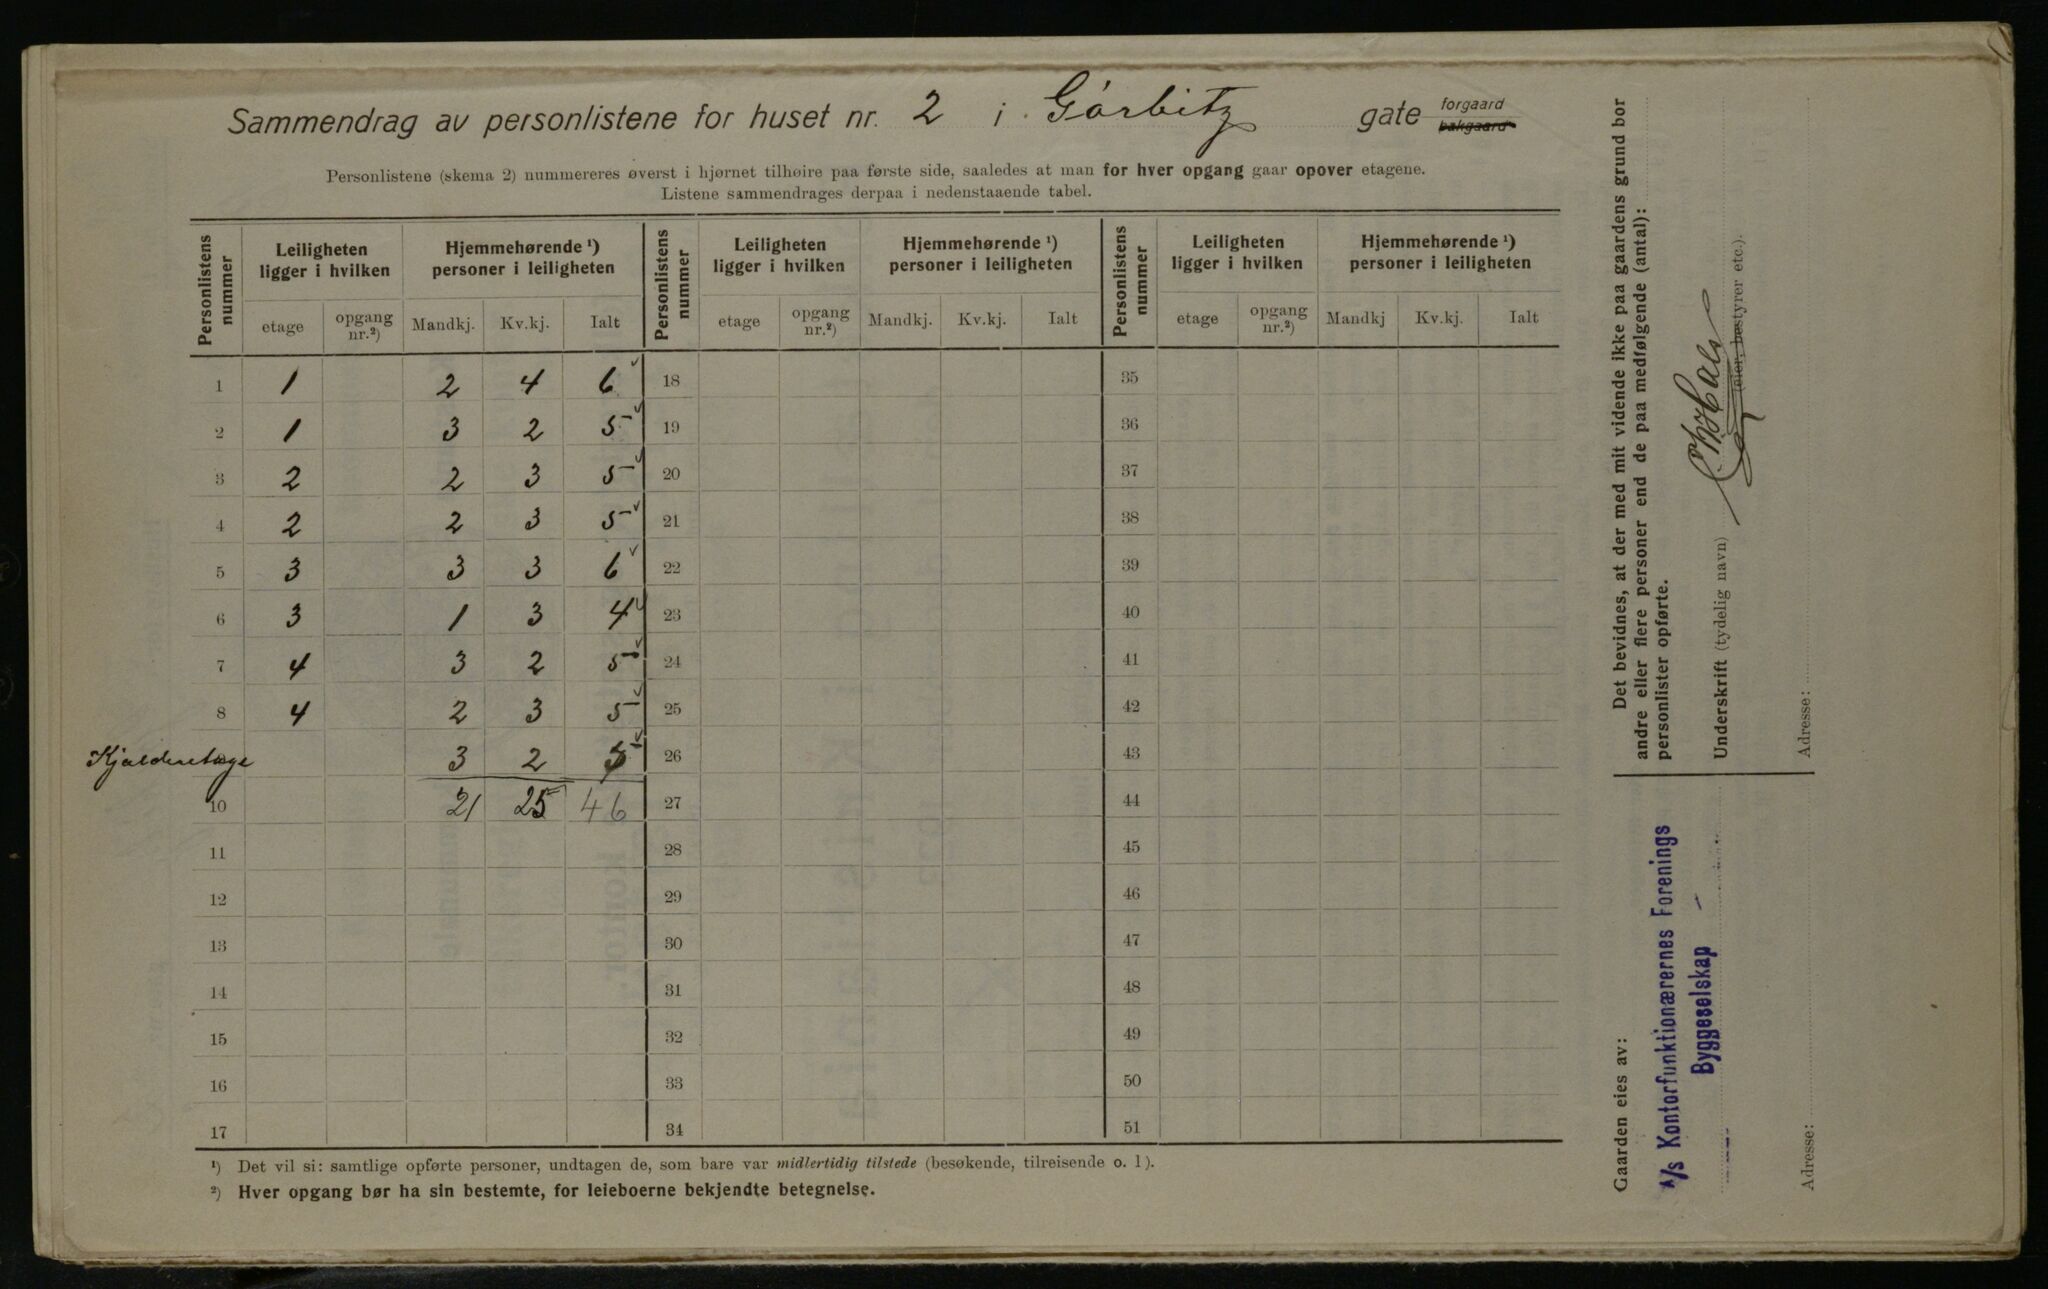 Sammendrag av personlistene for huset nr. 2 i Gørbitz gate forgaard bakgaard
Personlistene (skema 2) nummereres øverst i hjørnet tilhøire paa første side, saaledes at man for hver opgang gaar opover etagene.
Listene sammendrages derpaa i nedenstaaende tabel.
Personlistens nummer Leiligheten ligger i hvilken Hjemmehørende ¹) personer i leiligheten Personlistens nummer Leiligheten ligger i hvilken Hjemmehørende ¹) personer i leiligheten Personlistens nummer Leiligheten ligger i hvilken Hjemmehørende ¹) personer i leiligheten
etage opgang nr.²) Mandkj. Kv.kj. Ialt etage opgang nr.²) Mandkj. Kv.kj. Ialt etage opgang nr.²) Mandkj Kv.kj. Ialt
1 1 2 4 6 18 35
2 1 3 2 5 19 36
3 2 2 3 5 20 37
4 2 2 3 5 21 38
5 3 3 3 6 22 39
6 3 1 3 4 23 40
7 4 3 2 5 24 41
8 4 2 3 5 25 42
Kjælderetage 3 2 5 26 43
10 21 25 46 27 44
11 28 45
12 29 46
13 30 47
14 31 48
15 32 49
16 33 50
17 34 51
¹) Det vil si: samtlige opførte personer, undtagen de, som bare var midlertidig tilstede (besøkende, tilreisende o. l).
²) Hver opgang bør ha sin bestemte, for leieboerne bekjendte betegnelse.
Det bevidnes, at der med mit vidende ikke paa gaardens grund bor
andre eller flere personer end de paa medfølgende (antal):
personlister opførte.
Underskrift (tydelig navn)
(eier, bestyrer etc.).
Adresse:
Gaarden eies av:
A/s Kontorfunktionærernes Forenings
Byggeselskap
Adresse: